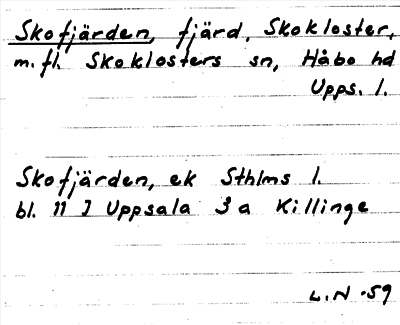 Skofjärden, fjärd, Skokloster,
m. fl. Skoklosters sn, Håbo hd
Upps. l.
Skofjärden, ek Sthlms l.
bl. 11 I Uppsala 3 a Killinge
L. N -59